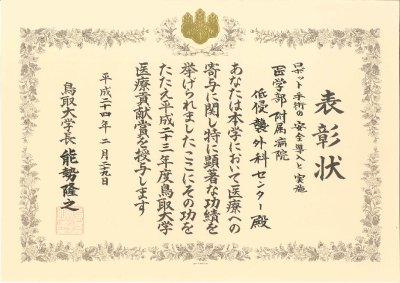 表彰状
ロボット手術の安全導入と実施
医学部附属病院
低侵襲外科センター 殿
あなたは本学において医療への
寄与に関し特に顕著な功績を
挙げられましたここにその功を
たたえ平成二十三年度鳥取大学
医療貢献賞を授与します
平成二十四年二月二九日
鳥取大学長 能勢隆之